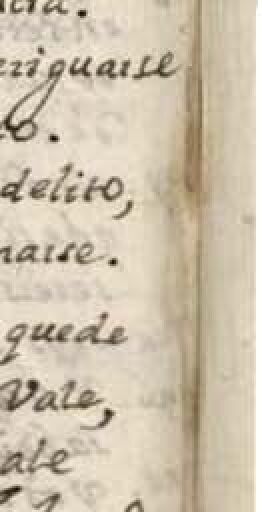 eriguarse
o.
delito,
narse.
quede
Vale,
ale